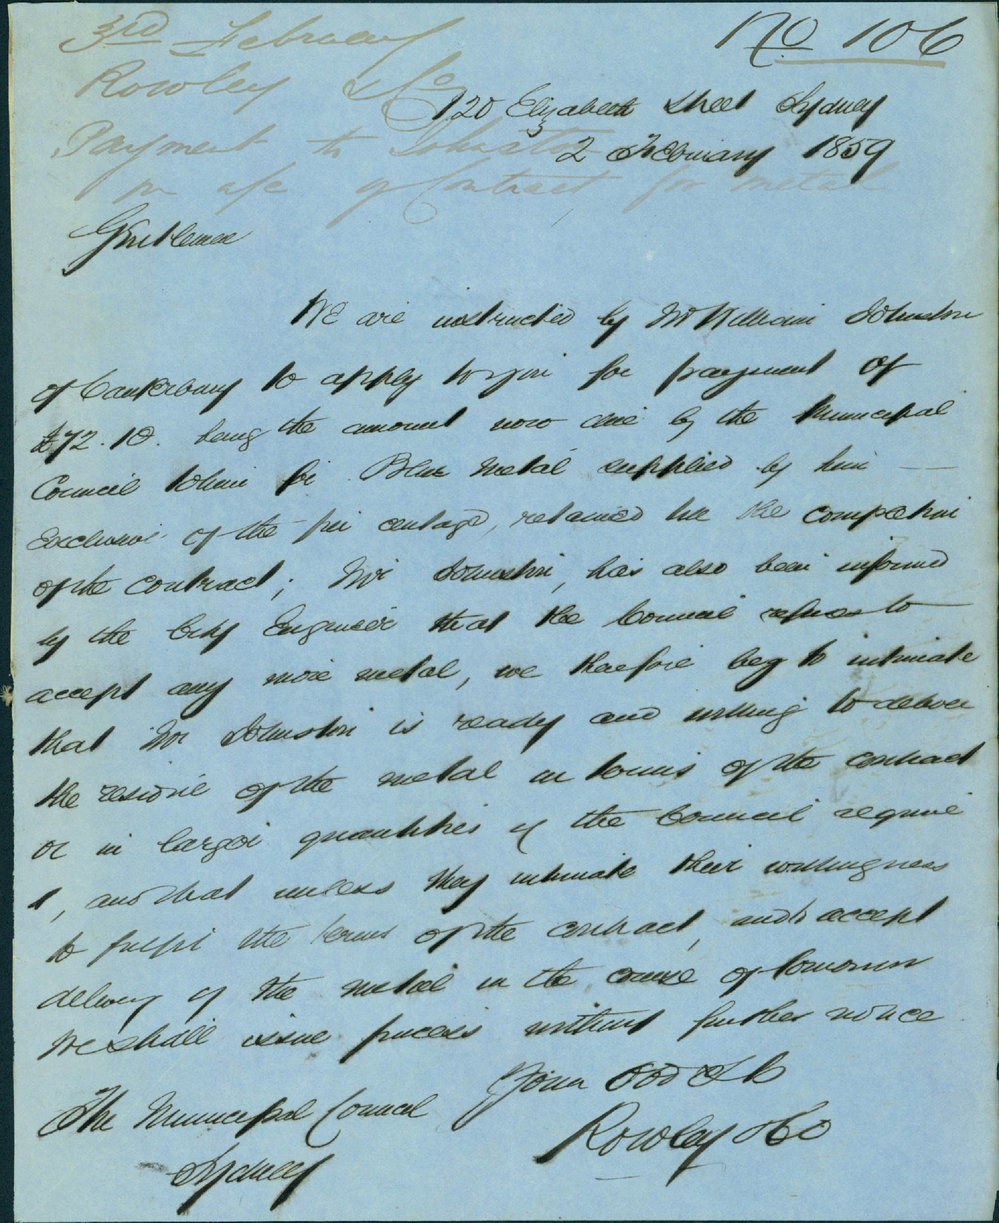 3rd February
No 106
Rowley & Co
120 Elizabeth Street Sydney
Payment to Johnston
2 February 1859
on a/c of Contract for metal
Gentlemen
We are instructed by Mr William Johnston
of Canterbury to apply to you for payment of
£72.10. being the amount now due by the Municipal
Council to him for Blue Metal supplied by him
exclusive of the per centage, retained till the completion
of the contract; Mr Johnston, has also been informed
by the City Engineer that the Council refuses to
accept any more metal, we therefore beg to intimate
that Mr Johnston is ready and willing to deliver
the residue of the metal in terms of the contract
or in larger quantities if the Council require
it, and that unless they intimate their willingness
to fulfil the terms of the contract, and to accept
delivery of the metal in the course of tomorrow
We shall issue process without further notice
Your Obd
The Municipal Council
Rowley & Co
Sydney